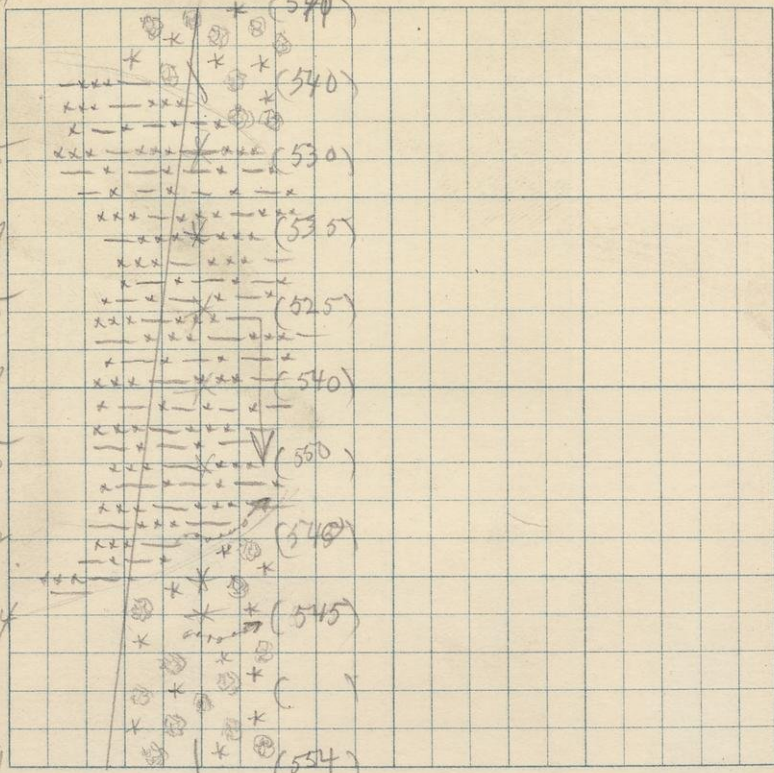 (540)
(530)
(535)
(525)
(540)
(550)
(545)
( )
(554)